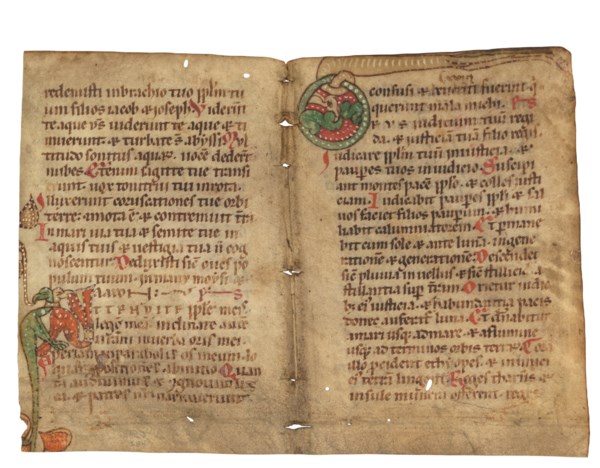 redemisti inbrachio tuo pplm tu
um filios iacob & ioseph Viderunt
te aque ds uiderunt te aque & ti
muerunt & turbate s abyssi Mul
titudo sonitus aquaꝝ uocē dedert
nubes Etenim sagitte tue transi
erunt uox tonitrui tui inrota
Illuxerunt coruscationes tue orbi
terre: cōmota ē & contremuit tra
In mari uia tua & semite tue in
aquis tuis & uestigia tua ñ cog
noscentur Deduxisti sic oues po
pulum tuum inmanu moysi &
aaron
ATTENDITE pple meus
legem meā inclinate aurē
uestram inuerba oris mei
Aperiam inparabolis os meum lo
quar propositiones abinitio Quan
ta audiuimus & cognouimus
ea & patres nri narrauerunt
confusi & reueriti fuerint q
querunt mala michi
DS iudicium tuū regi
da & iusticiā tuā filio regis
Iudicare pplm tuū iniusticia &
pauperes tuos iniudicio Suscipi
ant montes pacē pplo & colles iusti
ciam Iudicabit pauperes ppli & sal
uos faciet filios pauperum & humi
liabit calumniatorem Et permane
bit cum sole & ante lunā ingene
ratione & generationē Descendet
sic pluuia inuellus & sic stillicidia
stillantia sup terrā Orietur indie
bꝫ eius iusticia & habundantia pacis
donec auferetur luna Et dn̄abitur
a mari usq; admare & a flumine
usq; adterminos orbis terraꝝ Corā
illo procident ethyopes & inimici
eius terrā lingent Reges tharsis &
insule munera offerent reges